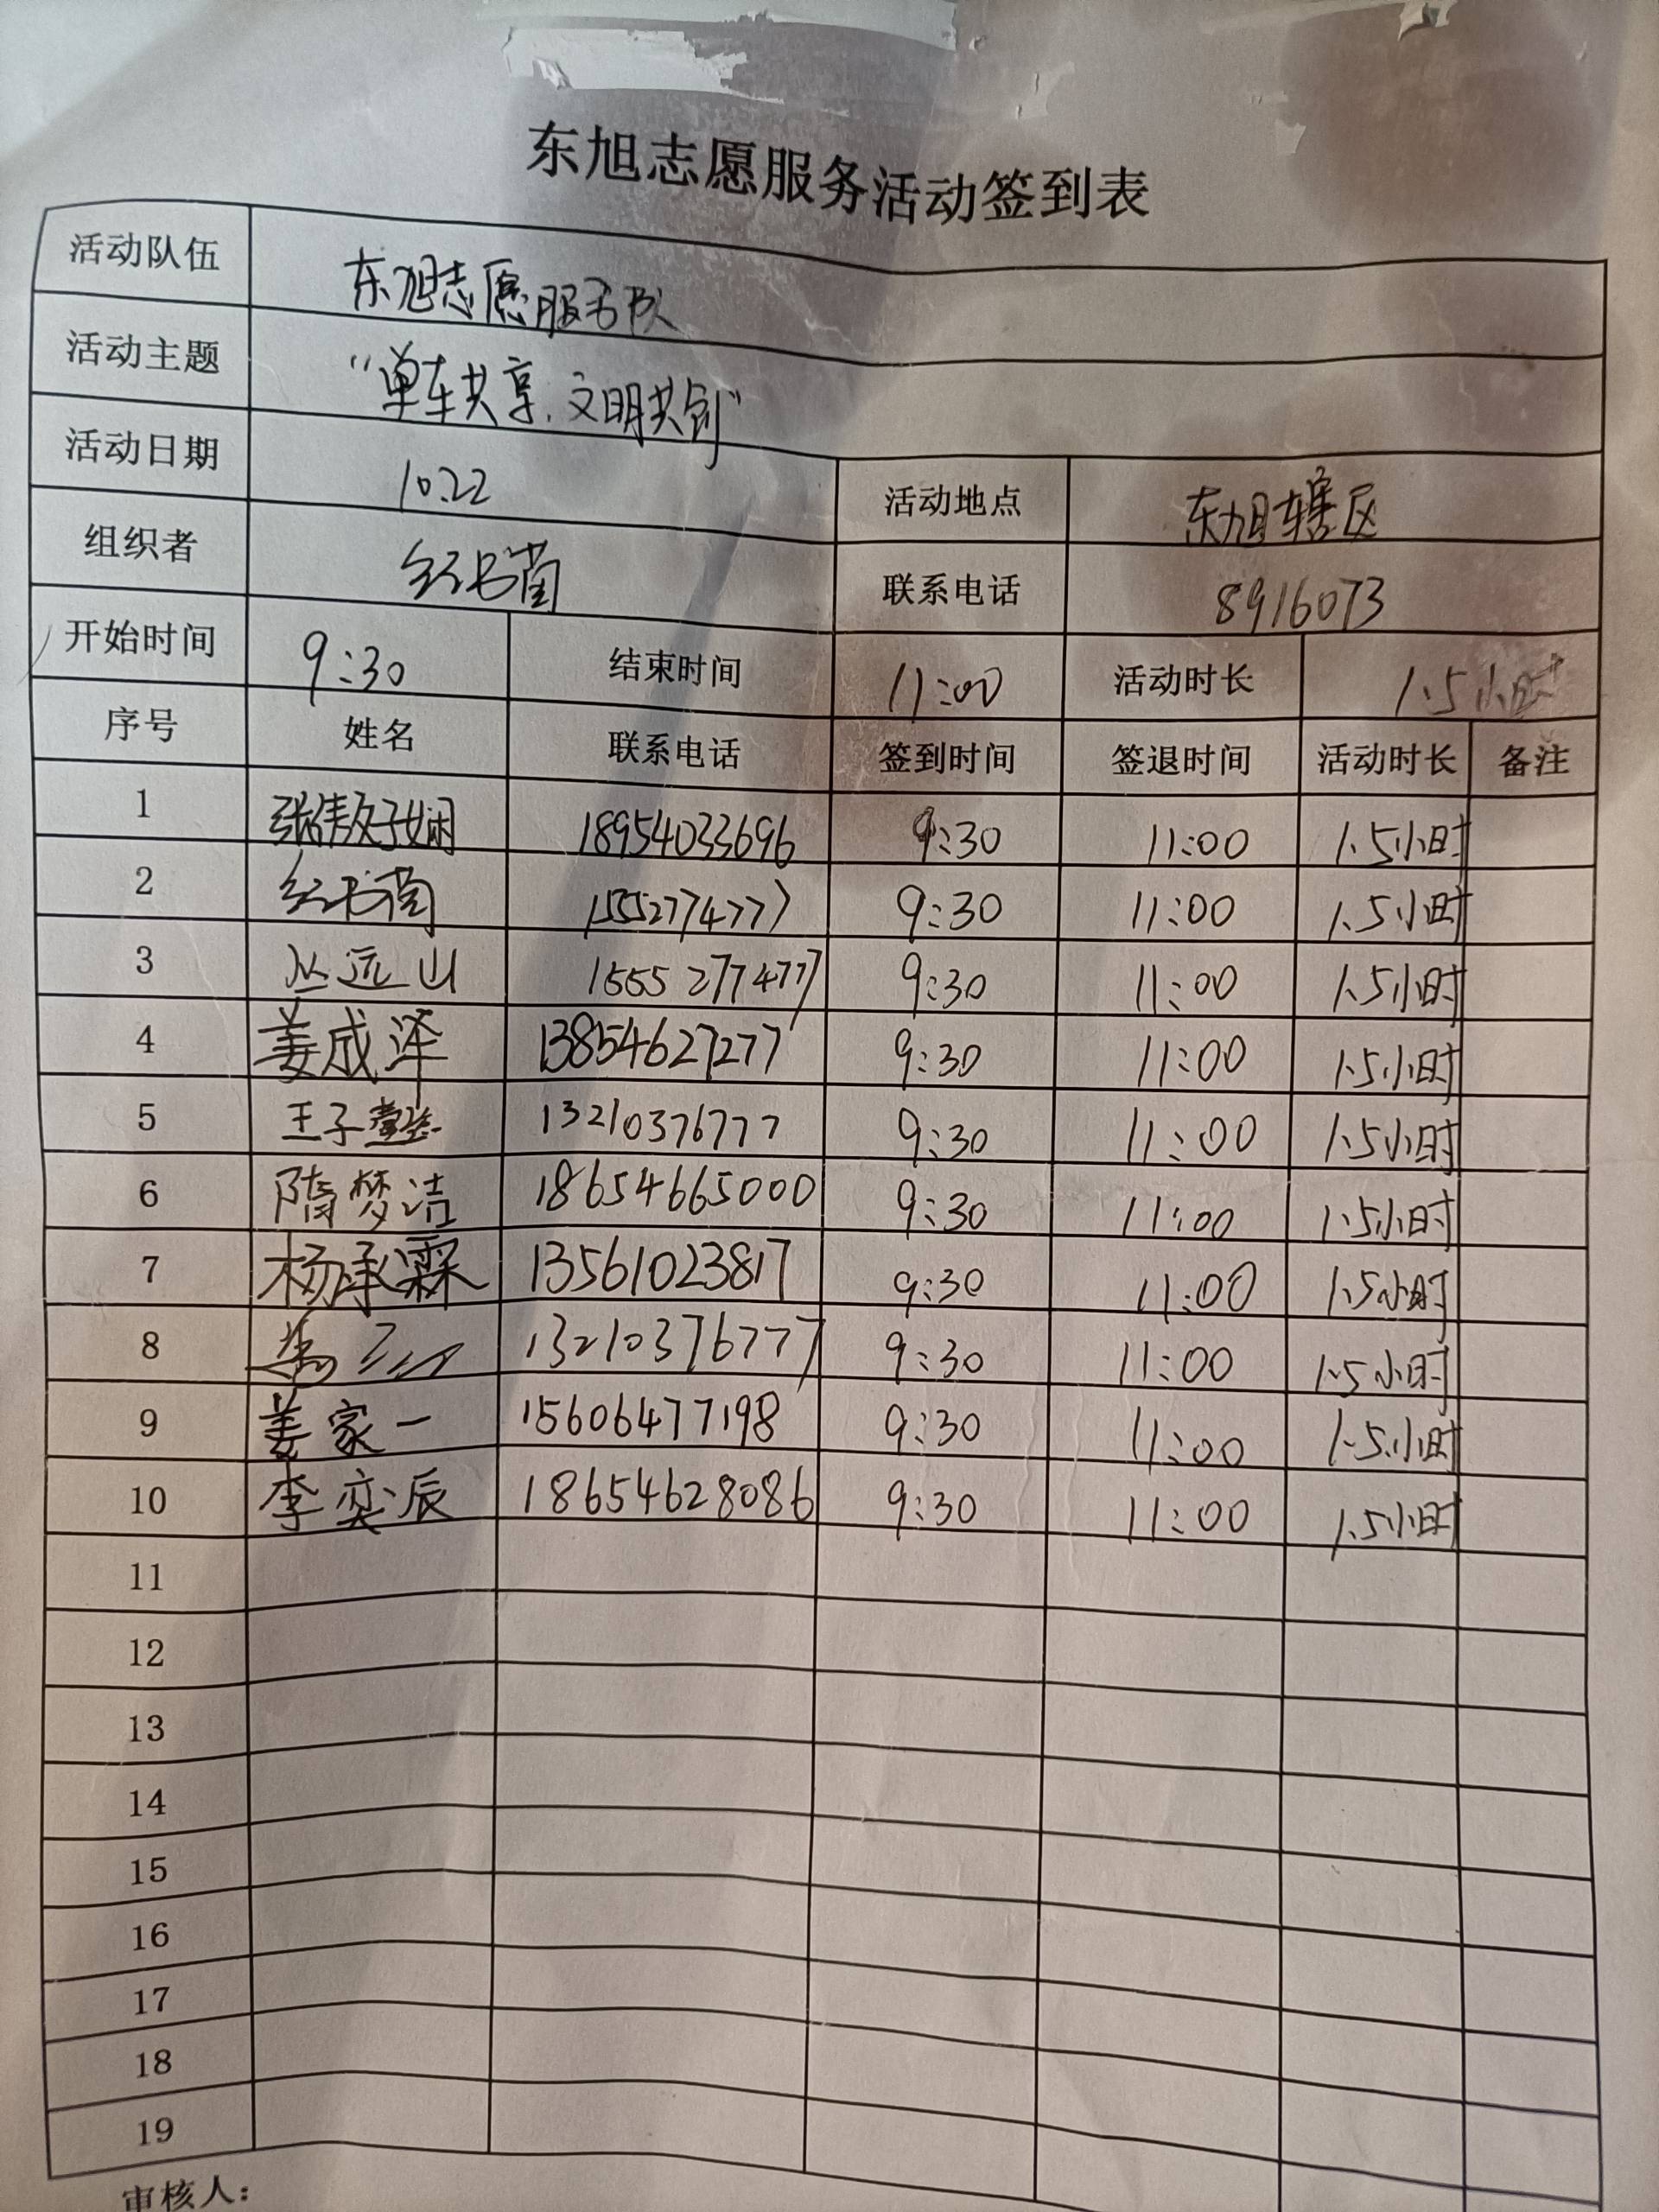 东旭志愿服务活动签到表
活动队伍 东旭志愿服务队
活动主题 “单车共享,文明共创”
活动日期 10.22 活动地点 东旭辖区
组织者 联系电话 8916073
开始时间 9:30 结束时间 11:00 活动时长 1.5小时
序号 姓名 联系电话 签到时间 签退时间 活动时长 备注
1 18954033696 9:30 11:00 1.5小时
2 15552774777 9:30 11:00 1.5小时
3 丛远山 15552774777 9:30 11:00 1.5小时
4 姜成泽 13854627277 9:30 11:00 1.5小时
5 王子 13210376777 9:30 11:00 1.5小时
6 隋梦洁 18654665000 9:30 11:00 1.5小时
7 杨承霖 13561023817 9:30 11:00 1.5小时
8 13210376777 9:30 11:00 1.5小时
9 姜家一 15606477198 9:30 11:00 1.5小时
10 李奕辰 18654628086 9:30 11:00 1.5小时
11
12
13
14
15
16
17
18
19
审核人：